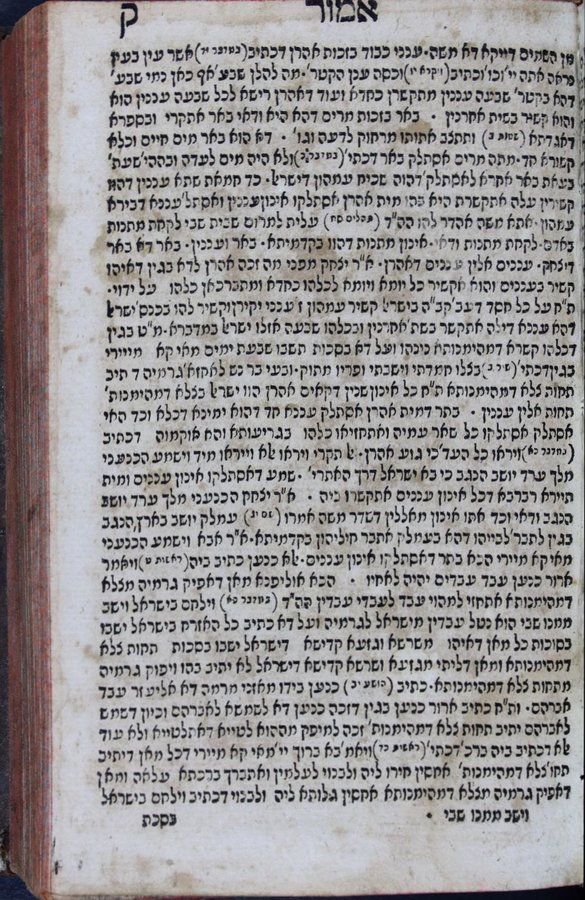 אמור
ק
מן השמים דייקא דא משה. ענני כבוד בזכות אהרן דכתיב (במדבר יד) אשר עין בעין
נראה אתה יי' וכו' וכתיב (ויקרא יו) וכסה ענן הקטר'. מה להלן שבע' אף כאן נמי שבע'
דהא בקטר' שבעה עננין מתקשרן כחדא ועוד דאהרן רישא לכל שבעה עננין הוא
והוא קשיר בשית אחרנין. באר בזכות מרים דהא היא ודאי באר אתקרי ובספרא
דאגדתא (שמות ב) ותתצב אחותו מרחוק לדעה וגו'. דא הוא באר מים חיים וכלא
קשורא חד. מתה מרים אסתלק באר דכתי' (במדבר כ) ולא היה מים לעדה ובההי' שעת'
בעאת באר אחרא לאסתלק' דהוה שכיח עמהון דישר'. כד חמאת שתא עננין דהוו
קשירין עלה אתקשרת היא בהו מית אהרן אסתלקו אינון עננין ואסת' לעננא דבירא
עמהון. אתא משה אהדר להו הה"ד (תהלים סח) עלית למרום שבית שבי לקחת מתנות
באדם. לקחת מתנות ודאי. אינון מתנות דהוו בקדמיתא. באר ועננין. באר דא באר
דיצחק. עננים אלין עננים דאהרן. א"ר יצחק מפני מה זכה אהרן לדא בגין דאיהו
קשיר בעננים והוא אקשיר כל יומא ויומא לכלהו כחדא ומתברכאן כלהו על ידוי.
ת"ח על כל חסד דעב' קב"ה בישר' קשיר עמהון ז' ענני יקירן וקשיר להו בכנס' ישר'
דהא עננא דילה אתקשר בשת' אחרנין ובכלהו שבעה אזלו ישר' במדברא. מ"ט בגין
דכלהו קשרא דמהימנותא נינהו ועל דא בסכות תשבו שבעת ימים מאי קא מיירי
בגין דכתי' (שיר ב) בצלו חמדתי וישבתי ופריו מתוק. ובעי בר נש לאחזא' גרמיה דיתיב
תחות צלא דמהימנותא ת"ח כל אינון שנין דקאים אהרן הוו ישר' בצלא דמהימנות'
תחות אלין עננין. בתר דמית אהרן אסתלק עננא חד דהוא ימינא דכלא וכד האי
אסתלק אסתלקו כל שאר עמיה ואתחזיאו כלהו בגריעותא והא אוקמוה דכתיב
(במדבר כ) ויראו כל העד' כי גוע אהרן. א' תקרי ויראו אלא וייראו מיד וישמע הכנעני
מלך ערד יושב הנגב כי בא ישראל דרך האתרי'. שמע דאסתלקו אינון עננים ומית
תיירא רברבא דכל אינון עננים אתקשרו ביה. א"ר יצחק הכנעני מלך ערד יושב
הנגב ודאי וכד אתו אינון מאללין דשדר משה אמרו (שם יג) עמלק יושב בארץ הנגב
בגין לתבר' לבייהו דהא בעמלק אתבר חיליהון בקדמיתא. א"ר אבא וישמע הכנעני
מאי קא מיירי הכא בתר דאסתלקו אינון עננים. אלא כנען כתיב ביה (ראשית ט) ויאמר
ארור כנען עבד עבדים יהיה לאחיו. הכא אוליפנא מאן דאפיק גרמיה מצלא
דמהימנותא אתחזי למהוי עבד לעבדי עבדין הה"ד (במדבר כא) וילחם בישראל וישב
ממנו שבי הוא נטל עבדין מישראל לגרמיה ועל דא כתיב כל האזרח בישראל ישבו
בסוכות כל מאן דאיהו משרשא וגזעא קדישא דישראל ישבו בסכות תחות צלא
דמהימנותא ומאן דליתי מגזעא ושרשא קדישא דישראל לא יתיב בהו ויפוק גרמיה
מתחות צלא דמהימנותא. כתיב (הושע יב) כנען בידו מאזני מרמה דא אליעזר עבד
אברהם. ות"ח כתיב ארור כנען בגין דזכה כנען דא לשמשא לאברהם וכיון דשמש
לאברהם יתיב תחות צלא דמהימנות' זכה למיפק מההוא לטייא דאתלטייא ולא עוד
אלא דכתיב ביה ברכ' דכתי' (ראשית כד) ויאמ' בא ברוך יי' מאי קא מיירי דכל מאן דיתיב
תחו' צלא דמהימנות' אחסין חירו ליה ולבנוי לעלמין ואתברך ברכתא עלאה ומאן
דאפיק גרמיה מצלא דמהימנותא אחסין גלותא ליה ולבנוי דכתיב וילחם בישראל
וישב ממנו שבי.
בסכת